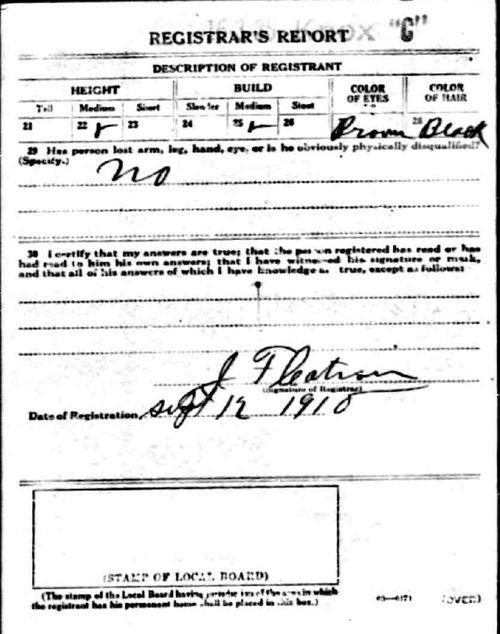 "C"
REGISTRAR'S REPORT
DESCRIPTION OF REGISTRANT
HEIGHT BUILD COLOR OF EYES COLOR OF HAIR
Tall Medium Short Slender Medium Stout
21 22 ✓ 23 24 25 ✓ 26 Brown 28 Black
29 Has person lost arm, leg, hand, eye, or is he obviously physically disqualified?
(Specify.) No
30 I certify that my answers are true; that the person registered has read or has
had read to him his own answers; that I have witnessed his signature or mark,
and that all of his answers of which I have knowledge are true, except as follows:
(Signature of Registrar)
Date of Registration, Sept 12 1918
(STAMP OF LOCAL BOARD)
(The stamp of the Local Board having jurisdiction of the area in which
the registrant has his permanent home shall be placed in this box.)
03—6171 (OVER)